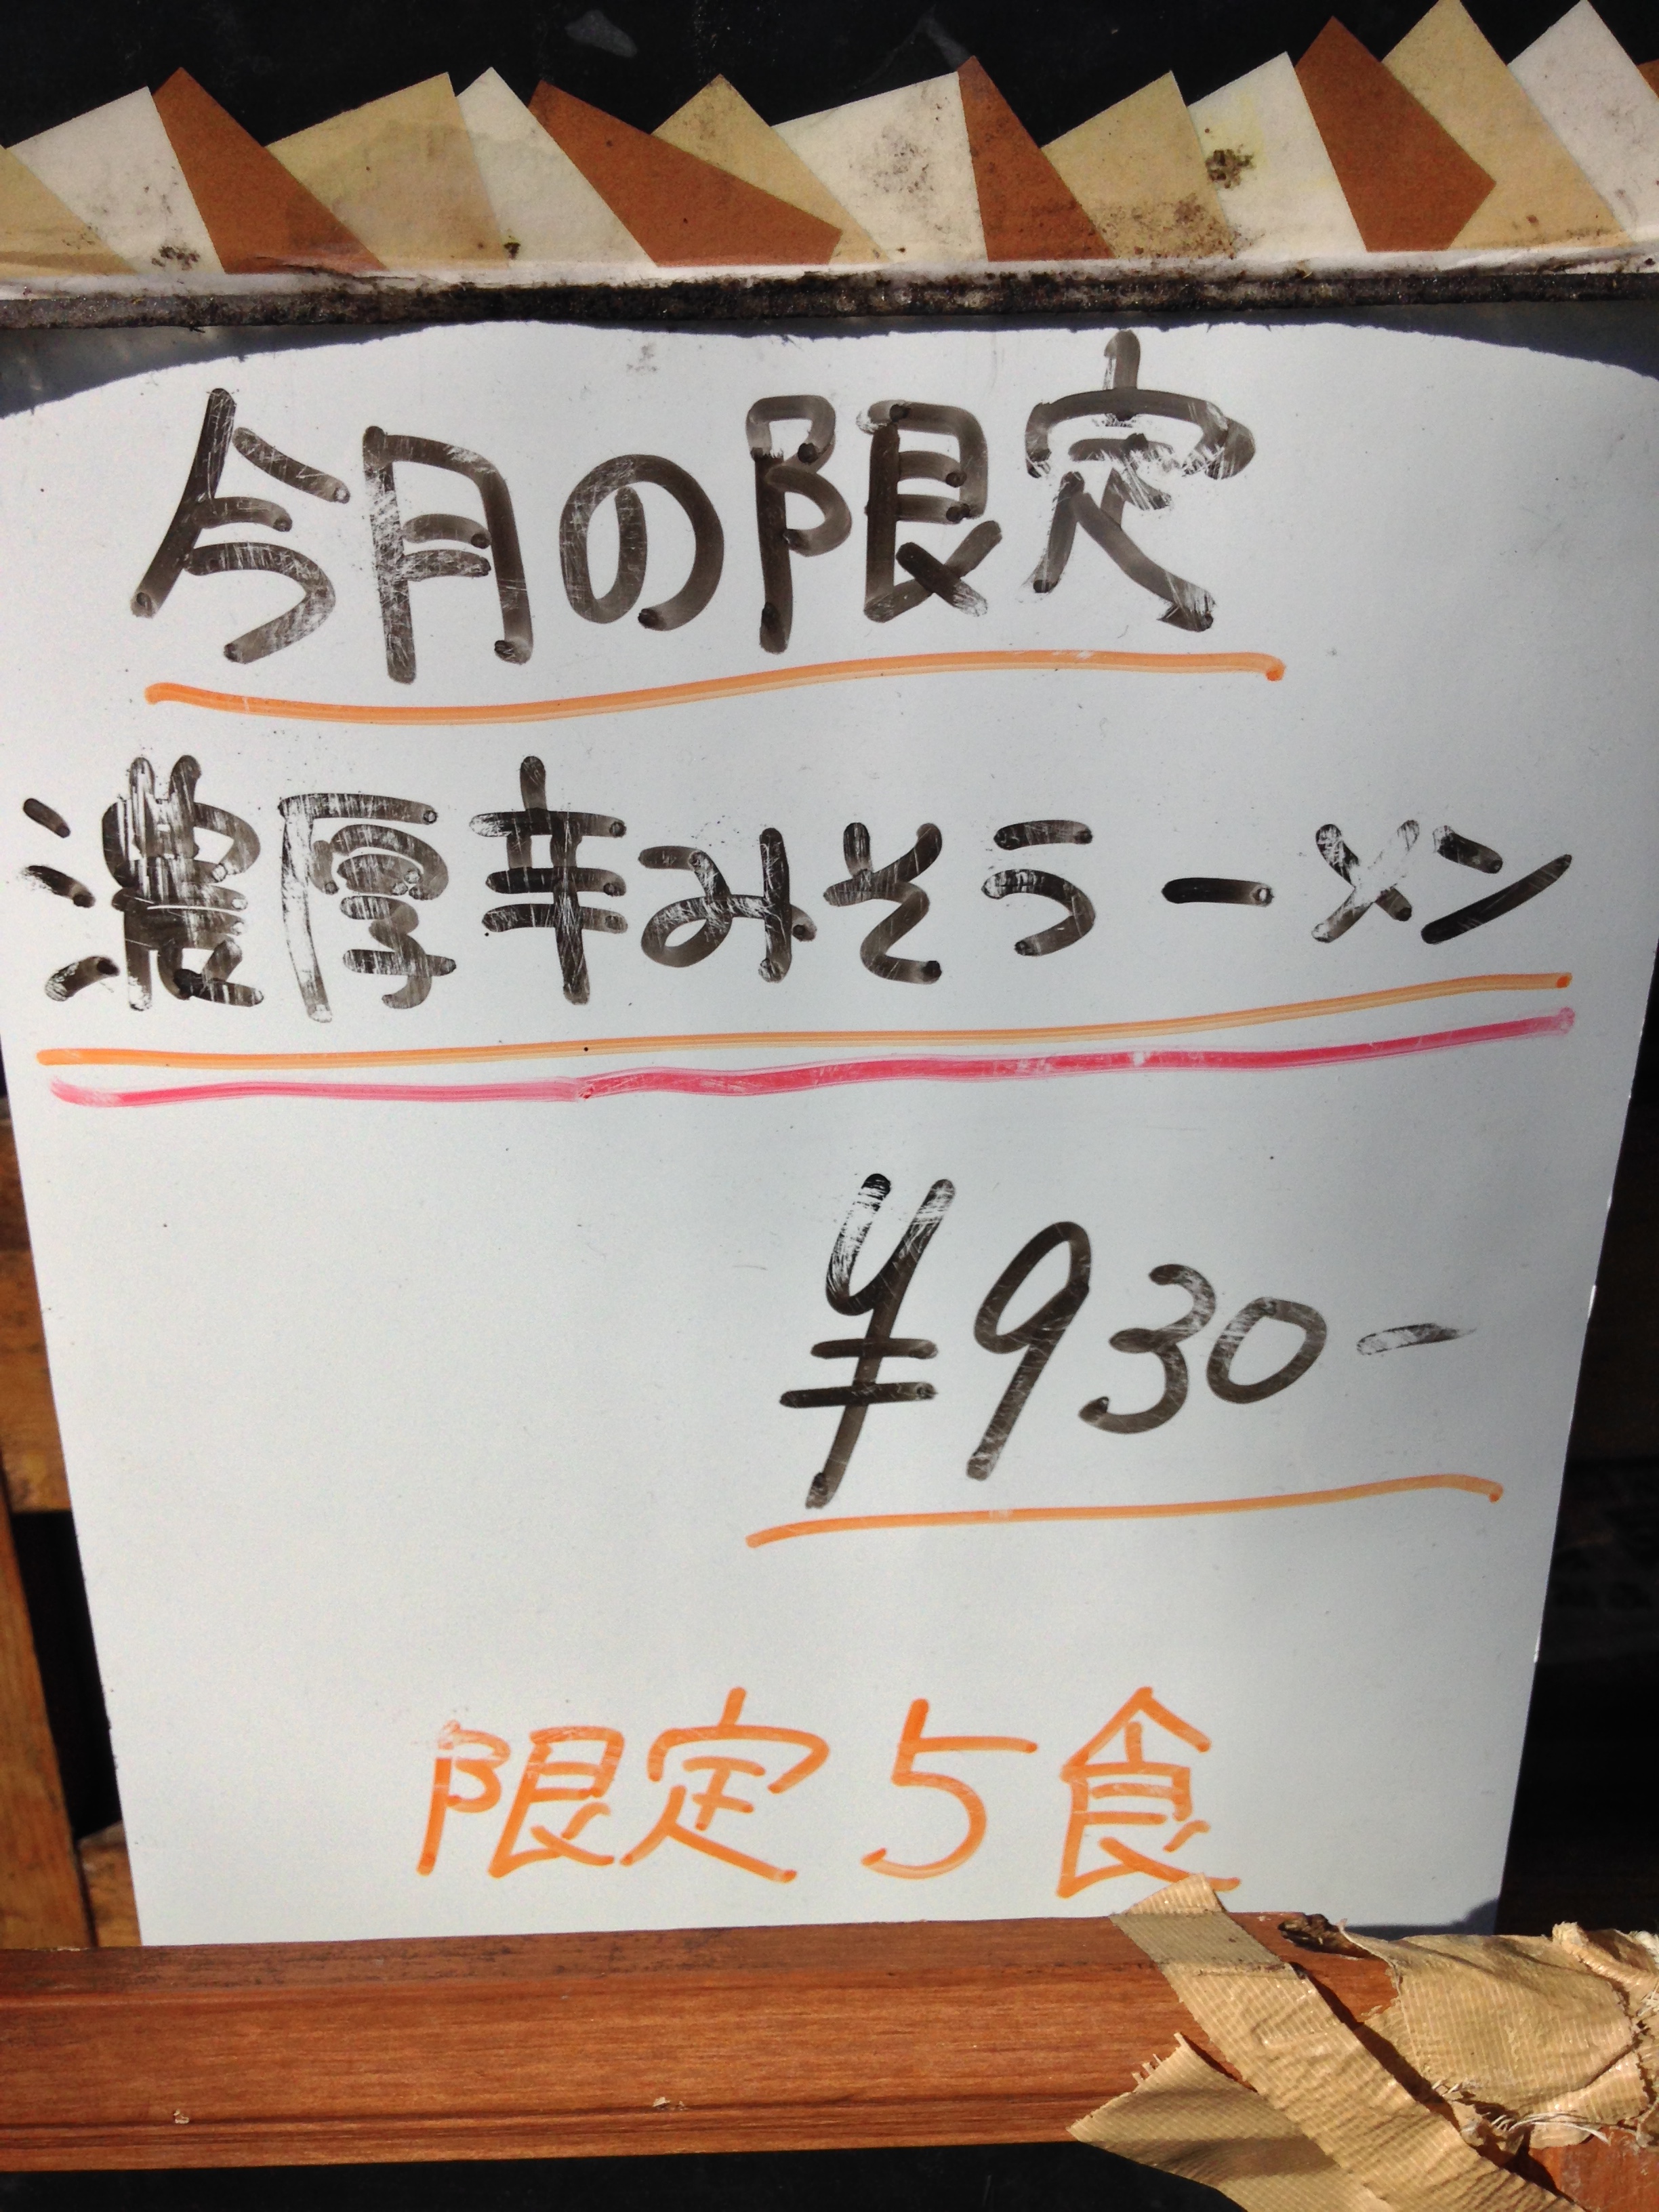 今月の限定
濃厚辛みそラーメン
¥930-
限定5食